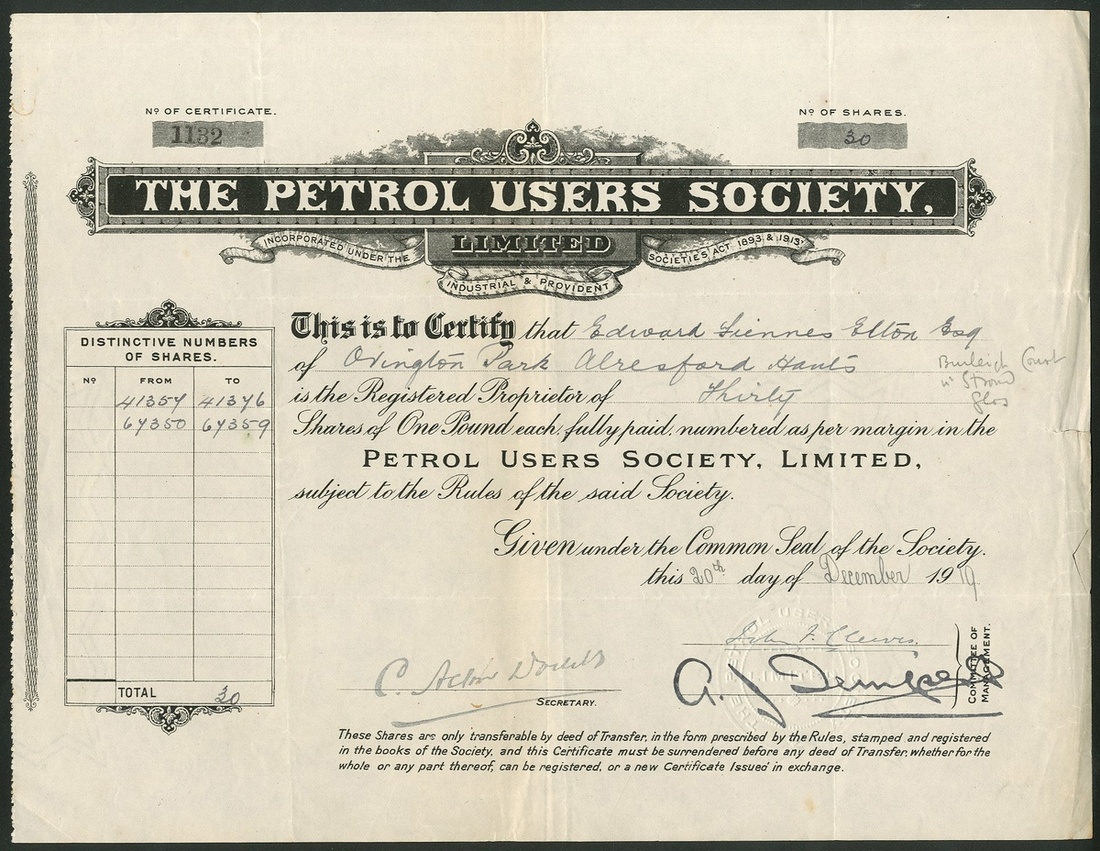 Nº OF CERTIFICATE.
1132
Nº OF SHARES.
30
THE PETROL USERS SOCIETY,
LIMITED
INCORPORATED UNDER THE
INDUSTRIAL & PROVIDENT
SOCIETIES ACT 1893 & 1913
DISTINCTIVE NUMBERS
OF SHARES.
Nº FROM TO
41357 41376
67350 67359
TOTAL 30
This is to Certify that Edward Fiennes Elton Esq
of Ovington Park Alresford Hants
Burleigh Court
nr Stroud
Glos
is the Registered Proprietor of Thirty
Shares of One Pound each, fully paid, numbered as per margin in the
PETROL USERS SOCIETY, LIMITED,
subject to the Rules of the said Society.
Given under the Common Seal of the Society.
this 20th day of December 1919
John F.
C. Acton
SECRETARY.
A. J.
COMMITTEE OF
MANAGEMENT.
These Shares are only transferable by deed of Transfer, in the form prescribed by the Rules, stamped and registered
in the books of the Society, and this Certificate must be surrendered before any deed of Transfer, whether for the
whole or any part thereof, can be registered, or a new Certificate Issued in exchange.